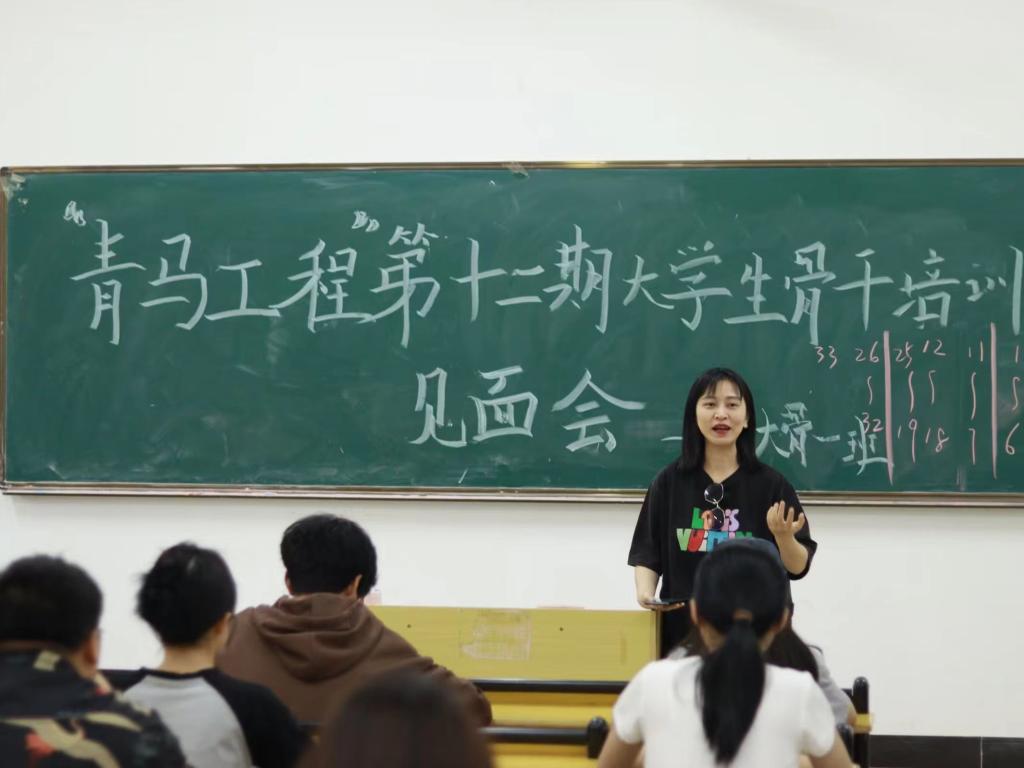 “青马工程”第十二期大学生骨干培训
见面会
大骨一班
33 26 25 12 11 1
32 19 18 7 6